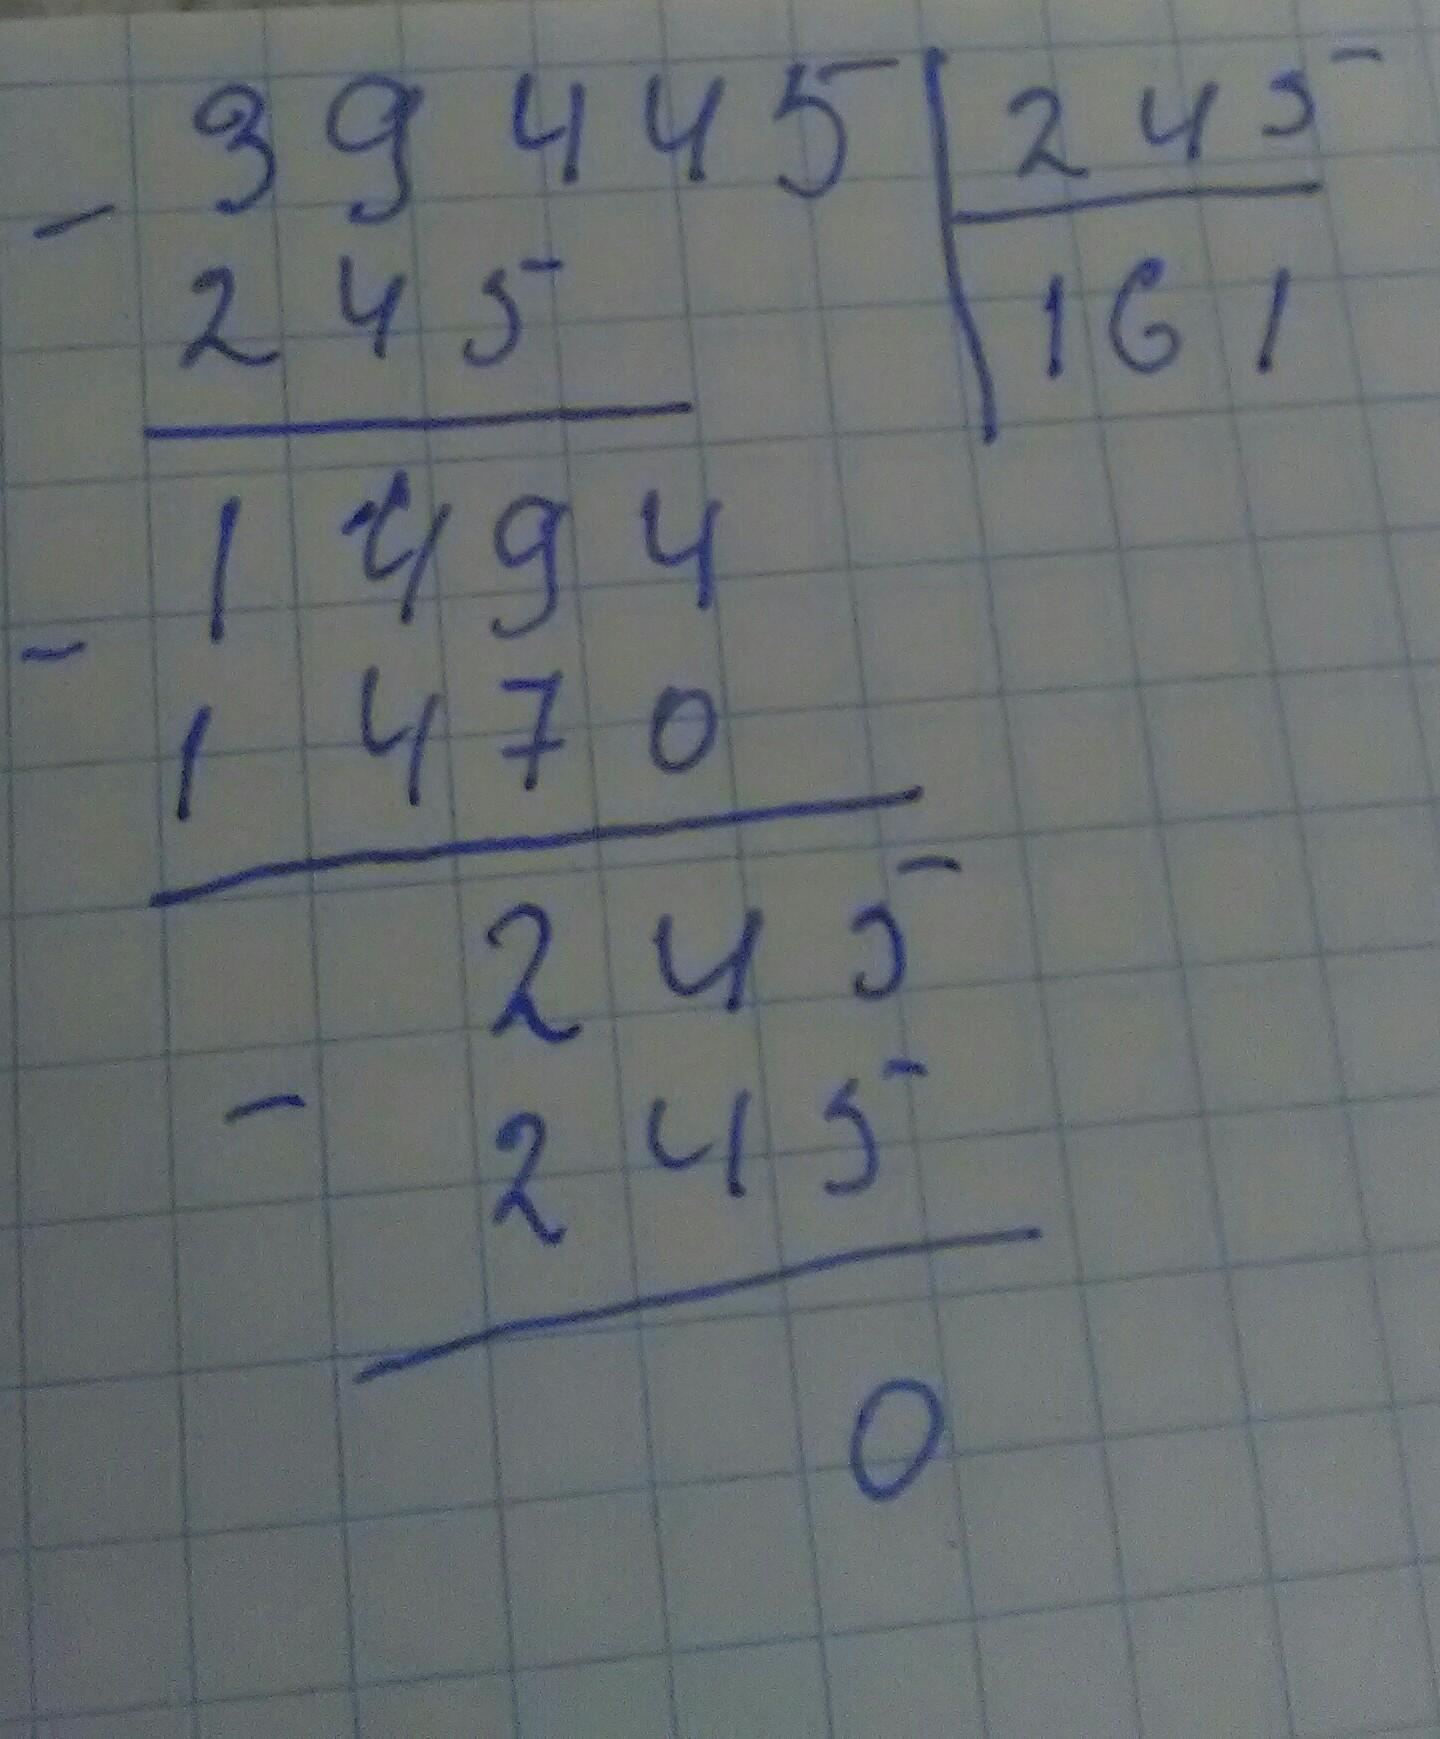 39445 | 245
- 245 | 161
1494
- 1470
245
- 245
0